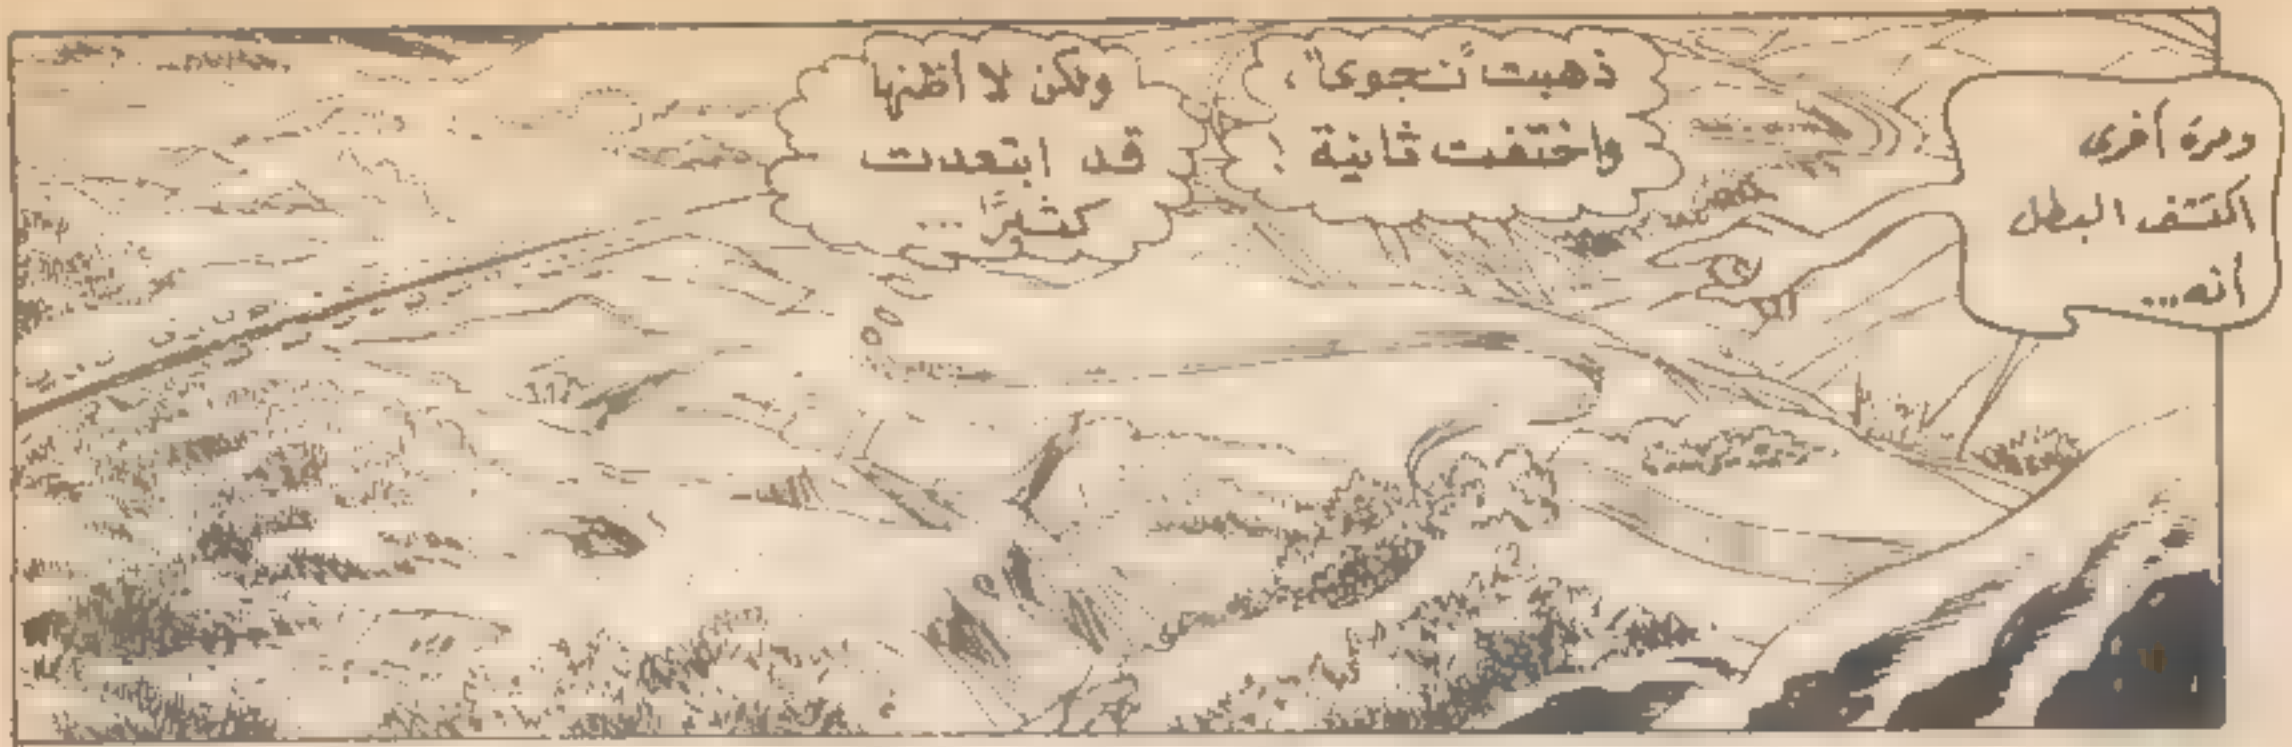 ومرة أخرى
اكتشف البطل
أنه...
ذهبت "نجوى"،
واختفت ثانية!
ولكن لا أظنها
قد ابتعدت
كثيرًا...